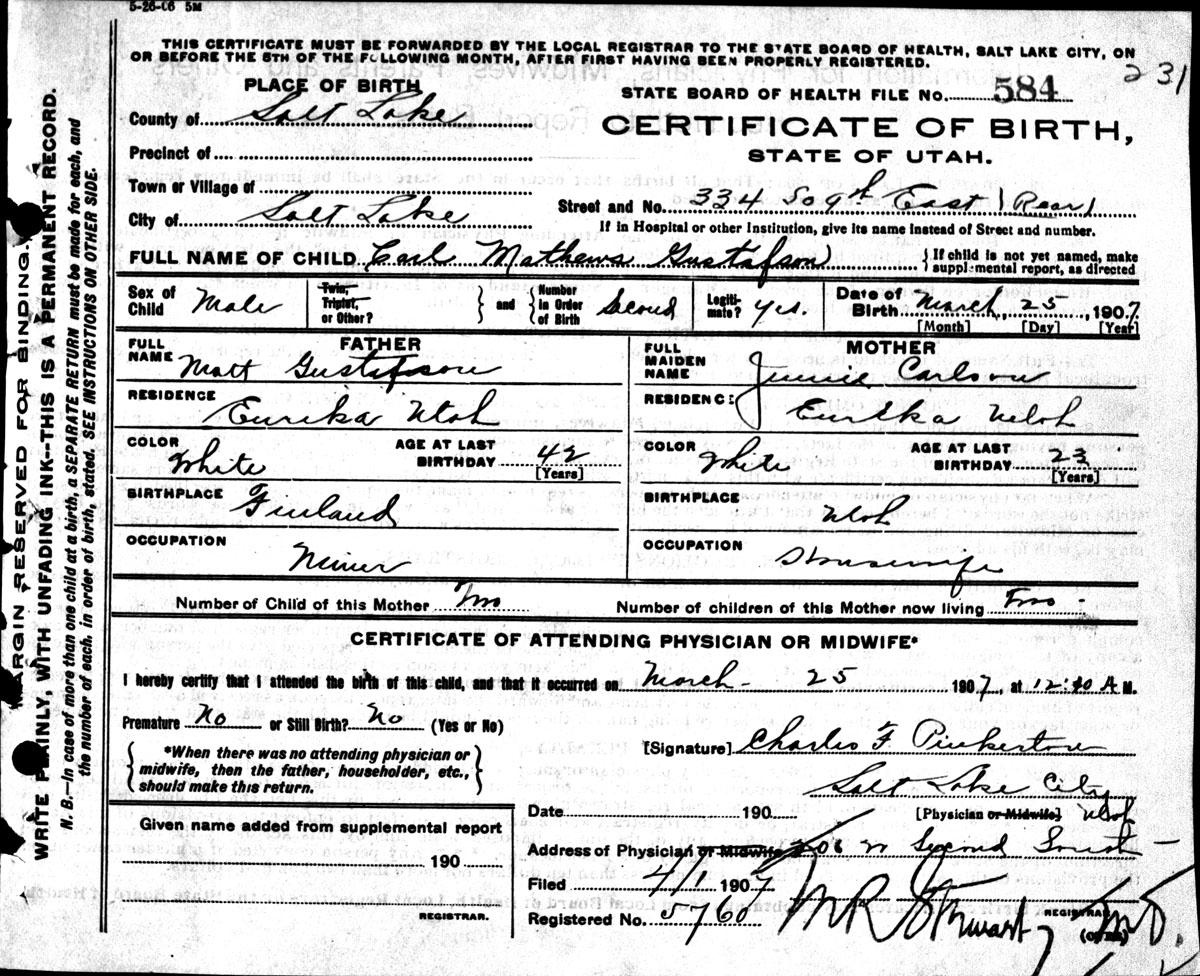 5-26-06 5M
THIS CERTIFICATE MUST BE FORWARDED BY THE LOCAL REGISTRAR TO THE STATE BOARD OF HEALTH, SALT LAKE CITY, ON
OR BEFORE THE 5TH OF THE FOLLOWING MONTH, AFTER FIRST HAVING BEEN PROPERLY REGISTERED.
231
PLACE OF BIRTH
STATE BOARD OF HEALTH FILE No. 584
County of Salt Lake
CERTIFICATE OF BIRTH,
STATE OF UTAH.
Precinct of
Town or Village of
City of Salt Lake
Street and No. 334 So 9th East (Rear)
If in Hospital or other Institution, give its name instead of Street and number.
FULL NAME OF CHILD Carl Mathews Gustafson
If child is not yet named, make
supplemental report, as directed
Sex of Child Male
Twin, Triplet, or Other?
and
Number in Order of Birth second
Legitimate? yes.
Date of Birth March, 25, 1907
[Month] [Day] [Year]
FATHER
FULL NAME Matt Gustafson
RESIDENCE Eureka Utah
COLOR White
AGE AT LAST BIRTHDAY 42
[Years]
BIRTHPLACE Finland
OCCUPATION Miner
MOTHER
FULL MAIDEN NAME Jennie Carlson
RESIDENCE: Eureka Utah
COLOR White
AGE AT LAST BIRTHDAY 23
[Years]
BIRTHPLACE Utah
OCCUPATION Housewife
Number of Child of this Mother Two
Number of children of this Mother now living Two.
CERTIFICATE OF ATTENDING PHYSICIAN OR MIDWIFE*
I hereby certify that I attended the birth of this child, and that it occurred on March 25 1907, at 12:40 A M.
Premature No or Still Birth? No (Yes or No)
*When there was no attending physician or
midwife, then the father, householder, etc.,
should make this return.
[Signature] Charles F Pinkerton
Salt Lake City
Utah
[Physician or Midwife]
Date 190
Address of Physician or Midwife 206 W Second South
Given name added from supplemental report
190
REGISTRAR.
Filed 4/1 1907
Registered No. 5760
M R Stewart M D.
REGISTRAR
MARGIN RESERVED FOR BINDING.
WRITE PLAINLY, WITH UNFADING INK--THIS IS A PERMANENT RECORD.
N. B.—In case of more than one child at a birth, a SEPARATE RETURN must be made for each, and
the number of each, in order of birth, stated. SEE INSTRUCTIONS ON OTHER SIDE.